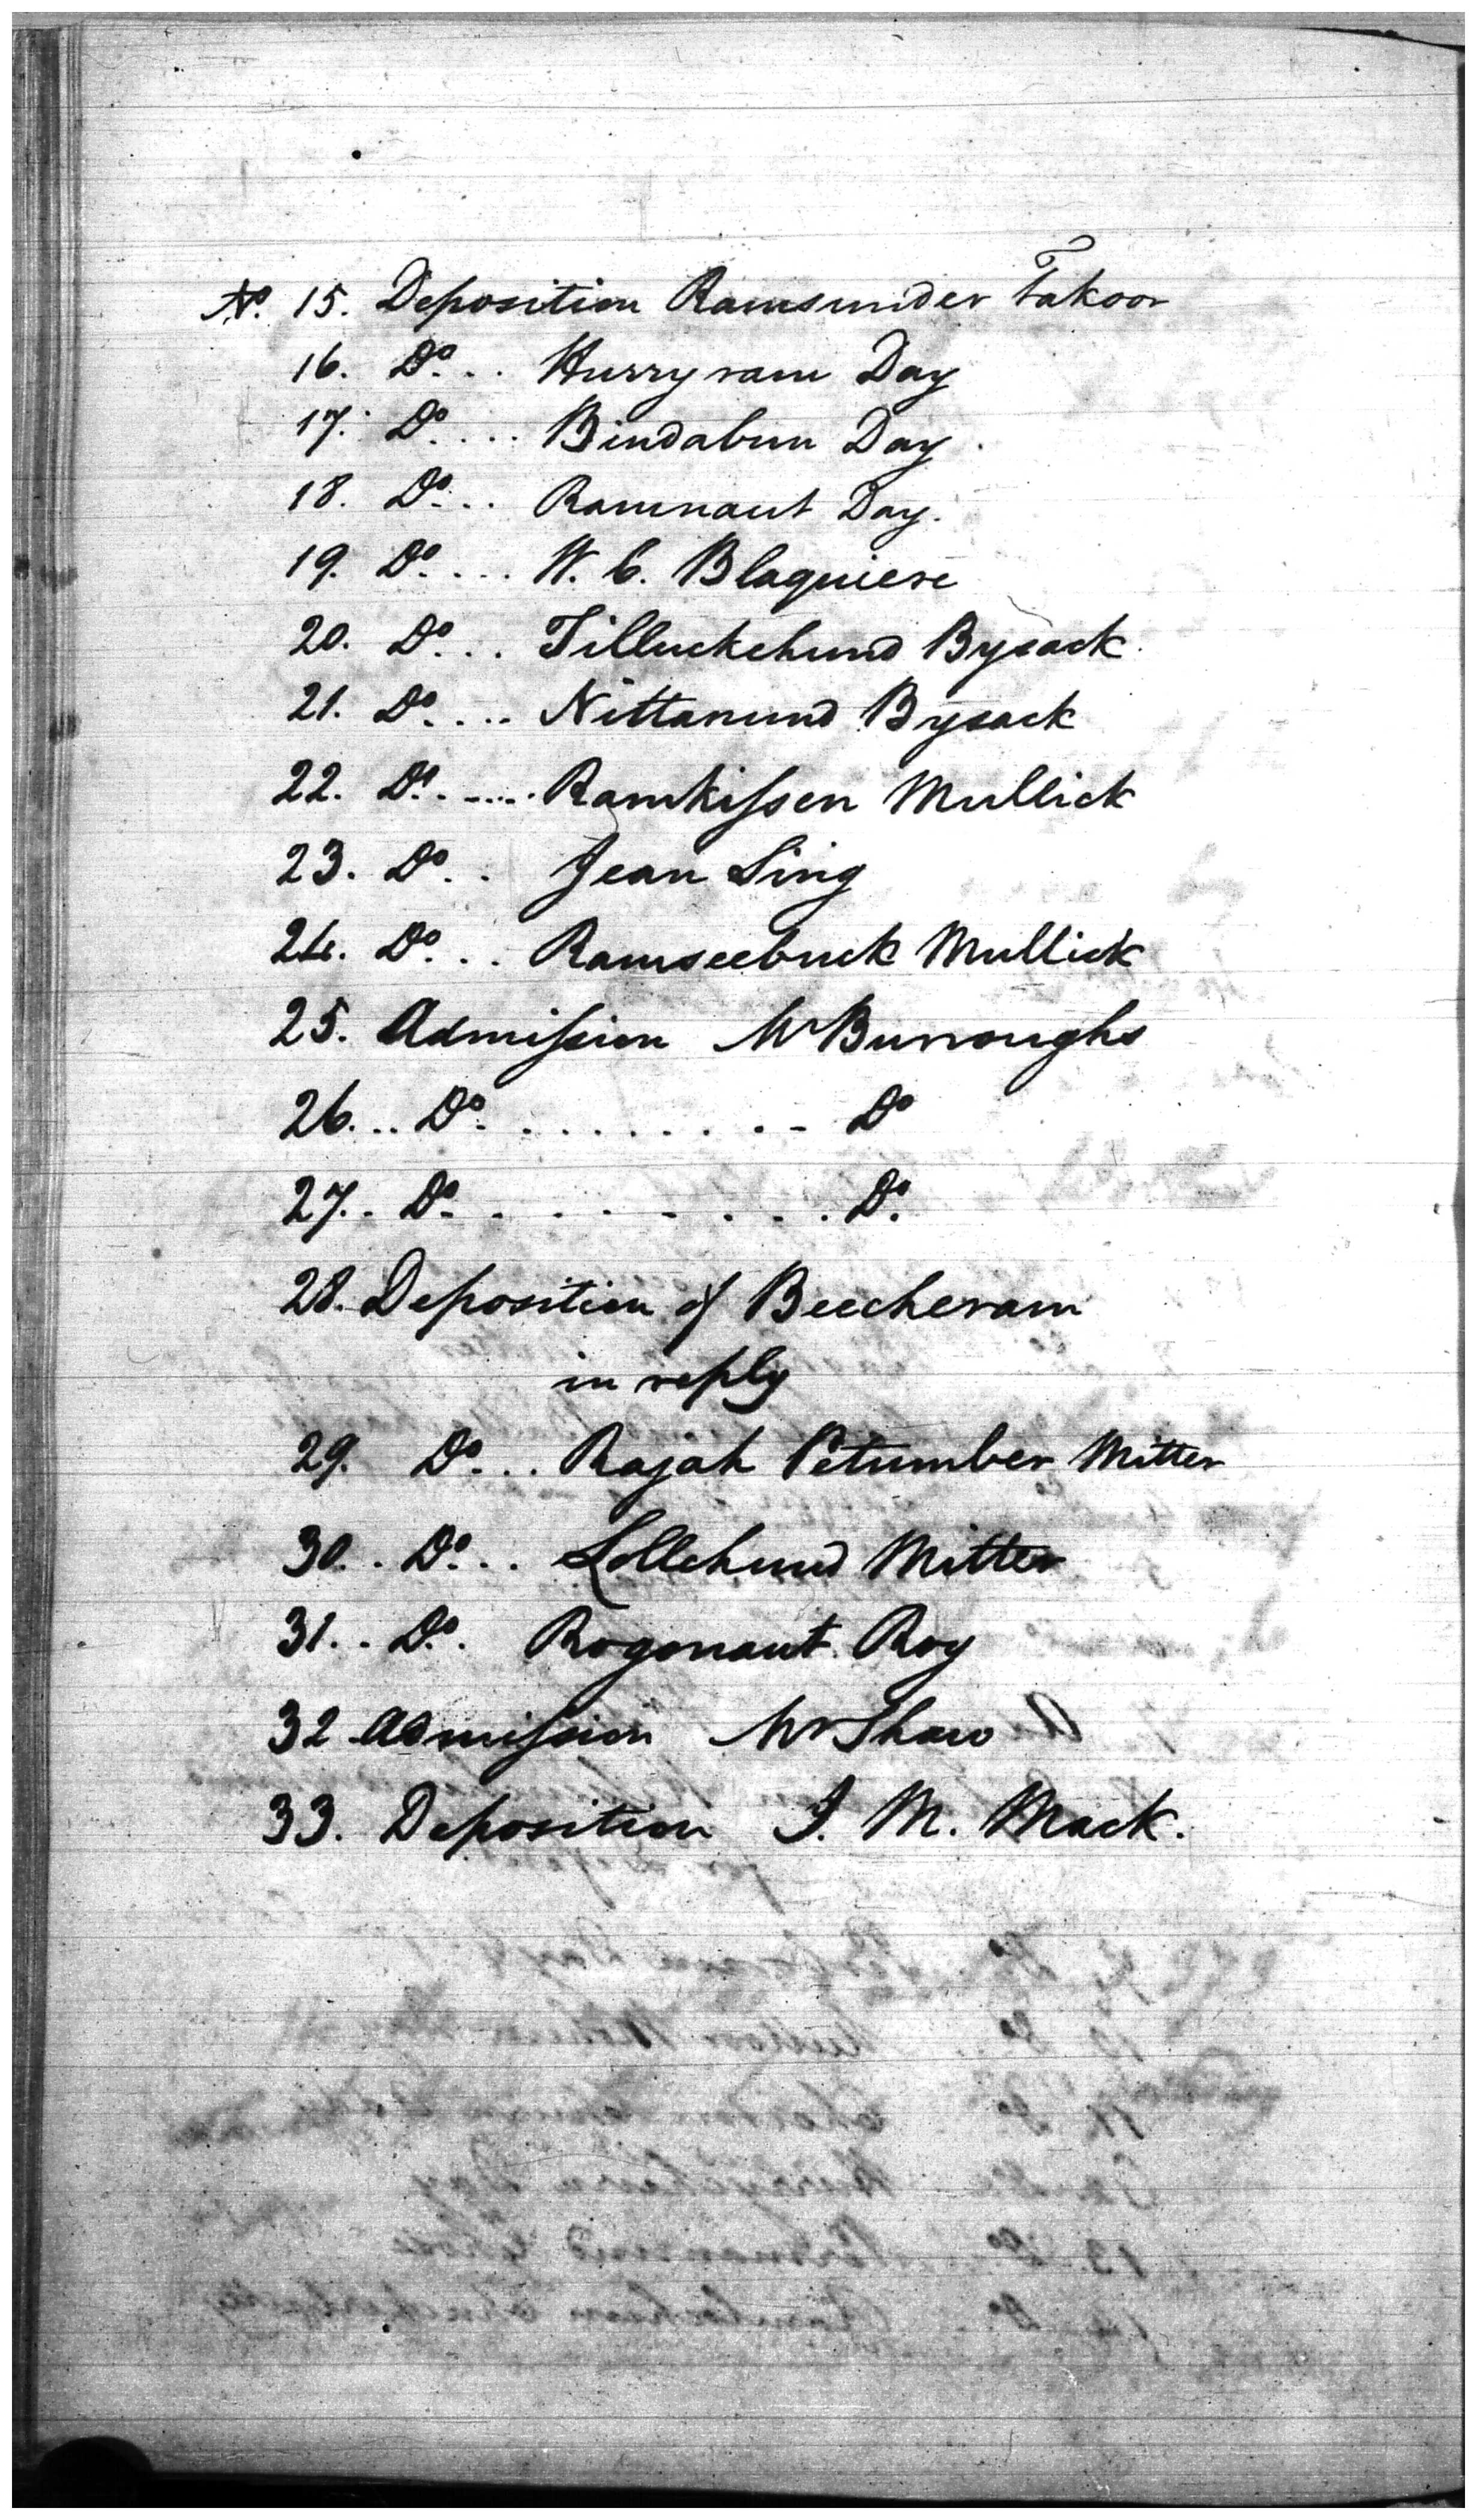 No. 15. Deposition Ramsunder Takoor
16. Do. .. Hurryram Day
17. Do. ... Bindabun Day
18. Do. .. Ramnaut Day.
19. Do. ... W. C. Blaquiere
20. Do. .. Tilluckchund Bysack
21. Do. ... Nittanund Bysack
22. Do. ..... Ramkissen Mullick
23. Do. . Jean Sing
24. Do. .. Ramseebuck Mullick
25. Admission Mr Burroughs
26. .. Do. ......... Do
27. . Do. ......... Do.
28. Deposition of Beecheram
in reply
29. Do. .. Rajah Petumber Mitter
30. . Do. .. Lollchund Mitter
31. .. Do. Rogonaut Roy
32 Admission Mr Shaw
33. Deposition J. M. Mack.